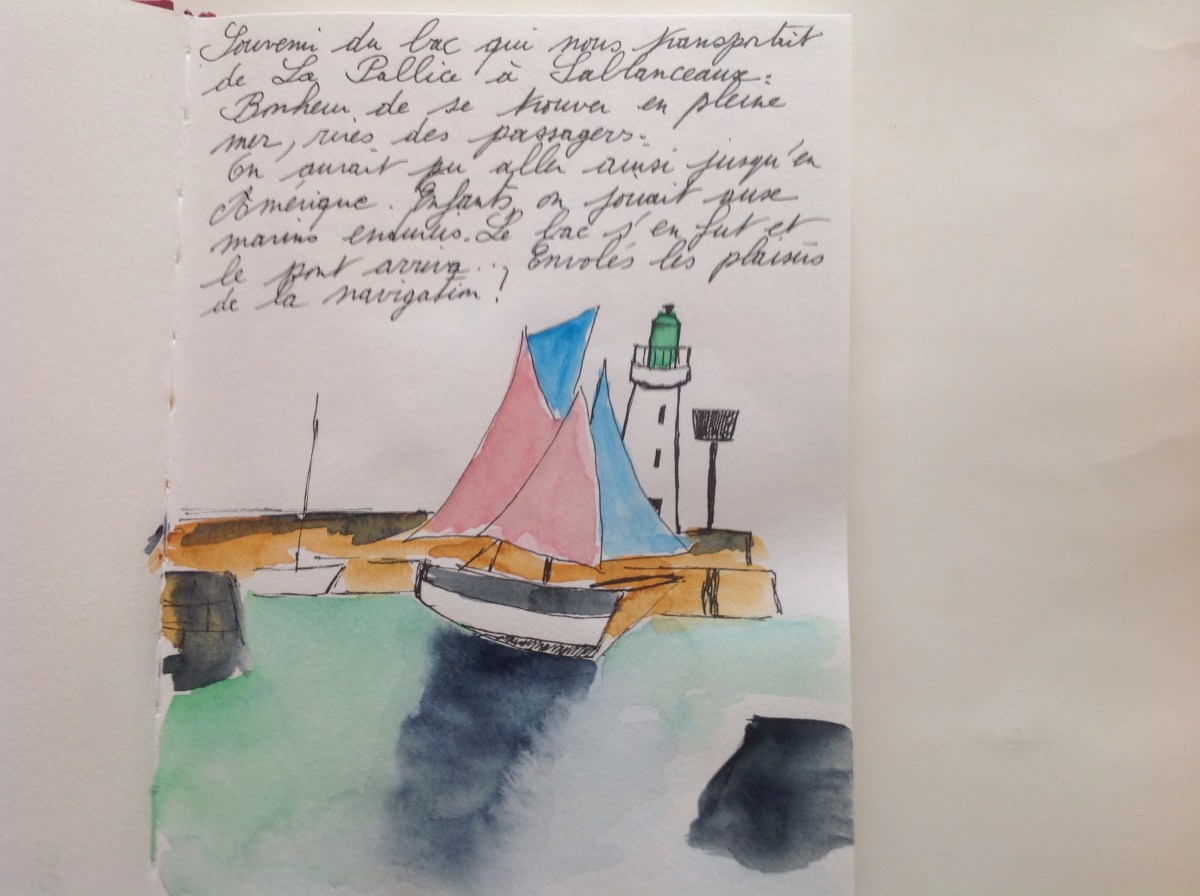 Souvenir du bac qui nous transportait
de La Pallice à Sablanceaux :
Bonheur de se trouver en pleine
mer, rires des passagers.
On aurait pu aller ainsi jusqu'en
Amérique. Enfants, on jouait aux
marins endurcis. Le bac s'en fut et
le pont arriva... Envolés les plaisirs
de la navigation !